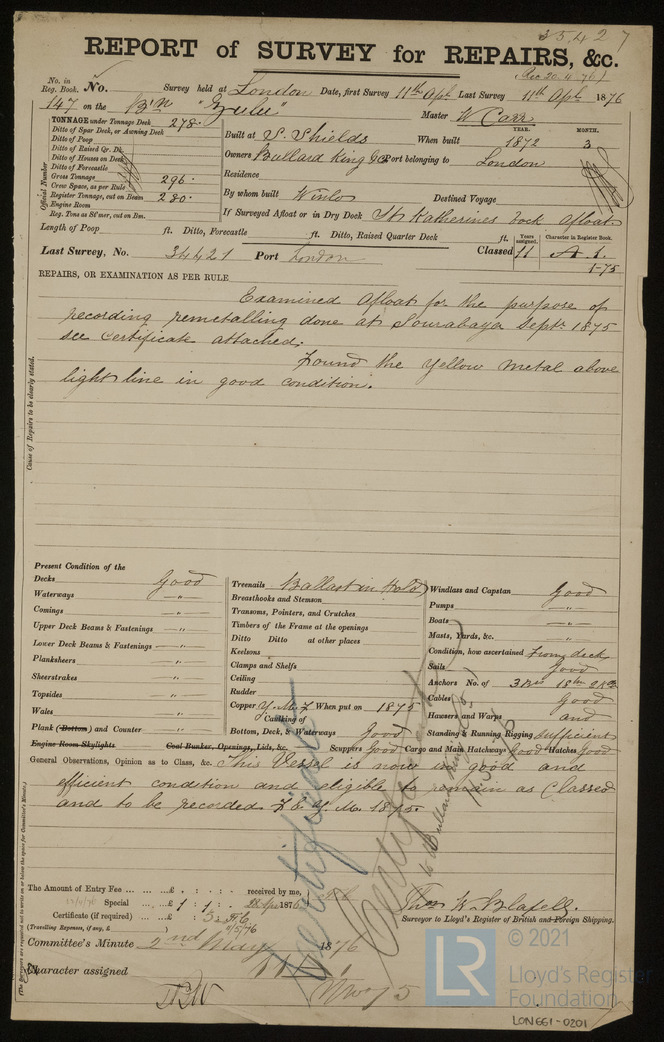 35427
REPORT of SURVEY for REPAIRS, &c.
(Rec 20.4.76)
No. in Reg. Book. No. Survey held at London Date, first Survey 11th Apl Last Survey 11th Apl 1876
147 on the Bn "Zulu" Master W Carr
TONNAGE under Tonnage Deck 278.
Ditto of Spar Deck, or Awning Deck
Ditto of Poop
Ditto of Raised Qr. Dk.
Ditto of Houses on Deck
Ditto of Forecastle
Gross Tonnage 296.
Crew Space, as per Rule
Register Tonnage, cut on Beam 280.
Engine Room
Reg. Tons as St'mer, cut on Bm.
Official Number
YEAR. MONTH.
Built at S. Shields When built 1872 3
Owners Bullard King &Co Port belonging to London
Residence
By whom built Winlo Destined Voyage
If Surveyed Afloat or in Dry Dock St Katherines Dock Afloat
Length of Poop ft. Ditto, Forecastle ft. Ditto, Raised Quarter Deck ft.
Years assigned. Character in Register Book.
Last Survey, No. 34421 Port London Classed 11 A.1.
1-75
REPAIRS, OR EXAMINATION AS PER RULE
Examined Afloat for the purpose of
recording remetalling done at Sourabaya Septr 1875
see certificate attached.
Found the Yellow Metal above
light line in good condition.
Cause of Repairs to be clearly stated.
Present Condition of the
Decks Good
Waterways -"-
Comings -"-
Upper Deck Beams & Fastenings -"-
Lower Deck Beams & Fastenings -"-
Planksheers -"-
Sheerstrakes -"-
Topsides -"-
Wales -"-
Plank (Bottom) and Counter -"-
Engine Room Skylights Coal Bunker, Openings, Lids, &c.
Treenails Ballast in Hold
Breasthooks and Stemson
Transoms, Pointers, and Crutches
Timbers of the Frame at the openings
Ditto Ditto at other places
Keelsons
Clamps and Shelfs
Ceiling
Rudder
Copper Y.M.F When put on 1875
Caulking of
Bottom, Deck, & Waterways Good
Scuppers Good Cargo and Main Hatchways Good Hatches Good
Windlass and Capstan Good
Pumps -"-
Boats -"-
Masts, Yards, &c. -"-
Condition, how ascertained From deck
Sails Good
Anchors No. of
Cables Good
Hawsers and Warps and
Standing & Running Rigging sufficient
General Observations, Opinion as to Class, &c. This Vessel is now in good and
efficient condition and eligible to remain as Classed
and to be recorded F. & Y. M. 1875.
Certificate
(The Surveyors are requested not to write on or below the space for Committee's Minute.)
The Amount of Entry Fee £ : : received by me,
Special £ 1 : 1 :
Certificate (if required) :
(Travelling Expenses, if any, £ )
Thos W. Blafell.
Surveyor to Lloyd's Register of British and Foreign Shipping.
Committee's Minute 2nd May 1876
Character assigned
LR
© 2021
Lloyd's Register
Foundation
LON661-0201